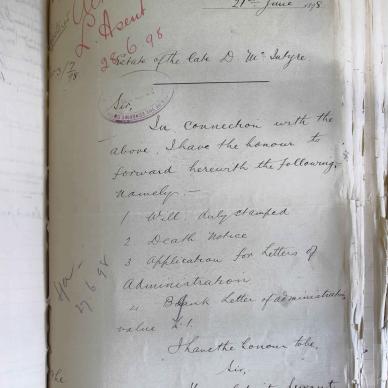 21st June 1898
L. Asent
28.6.98
Estate of the late D McIntyre
Sir,
In connection with the
above, I have the honour to
forward herewith the following,
namely:-
1 Will duly stamped
2 Death Notice
3 Application for Letters of
Administration
4 Blank Letter of administration
value £1.
I have the honour to be,
Sir,
27.6.98